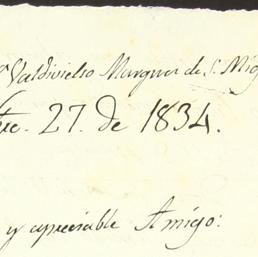 Valdivielso Marques de S. Mig
27. de 1834.
y apreciable Amigo: